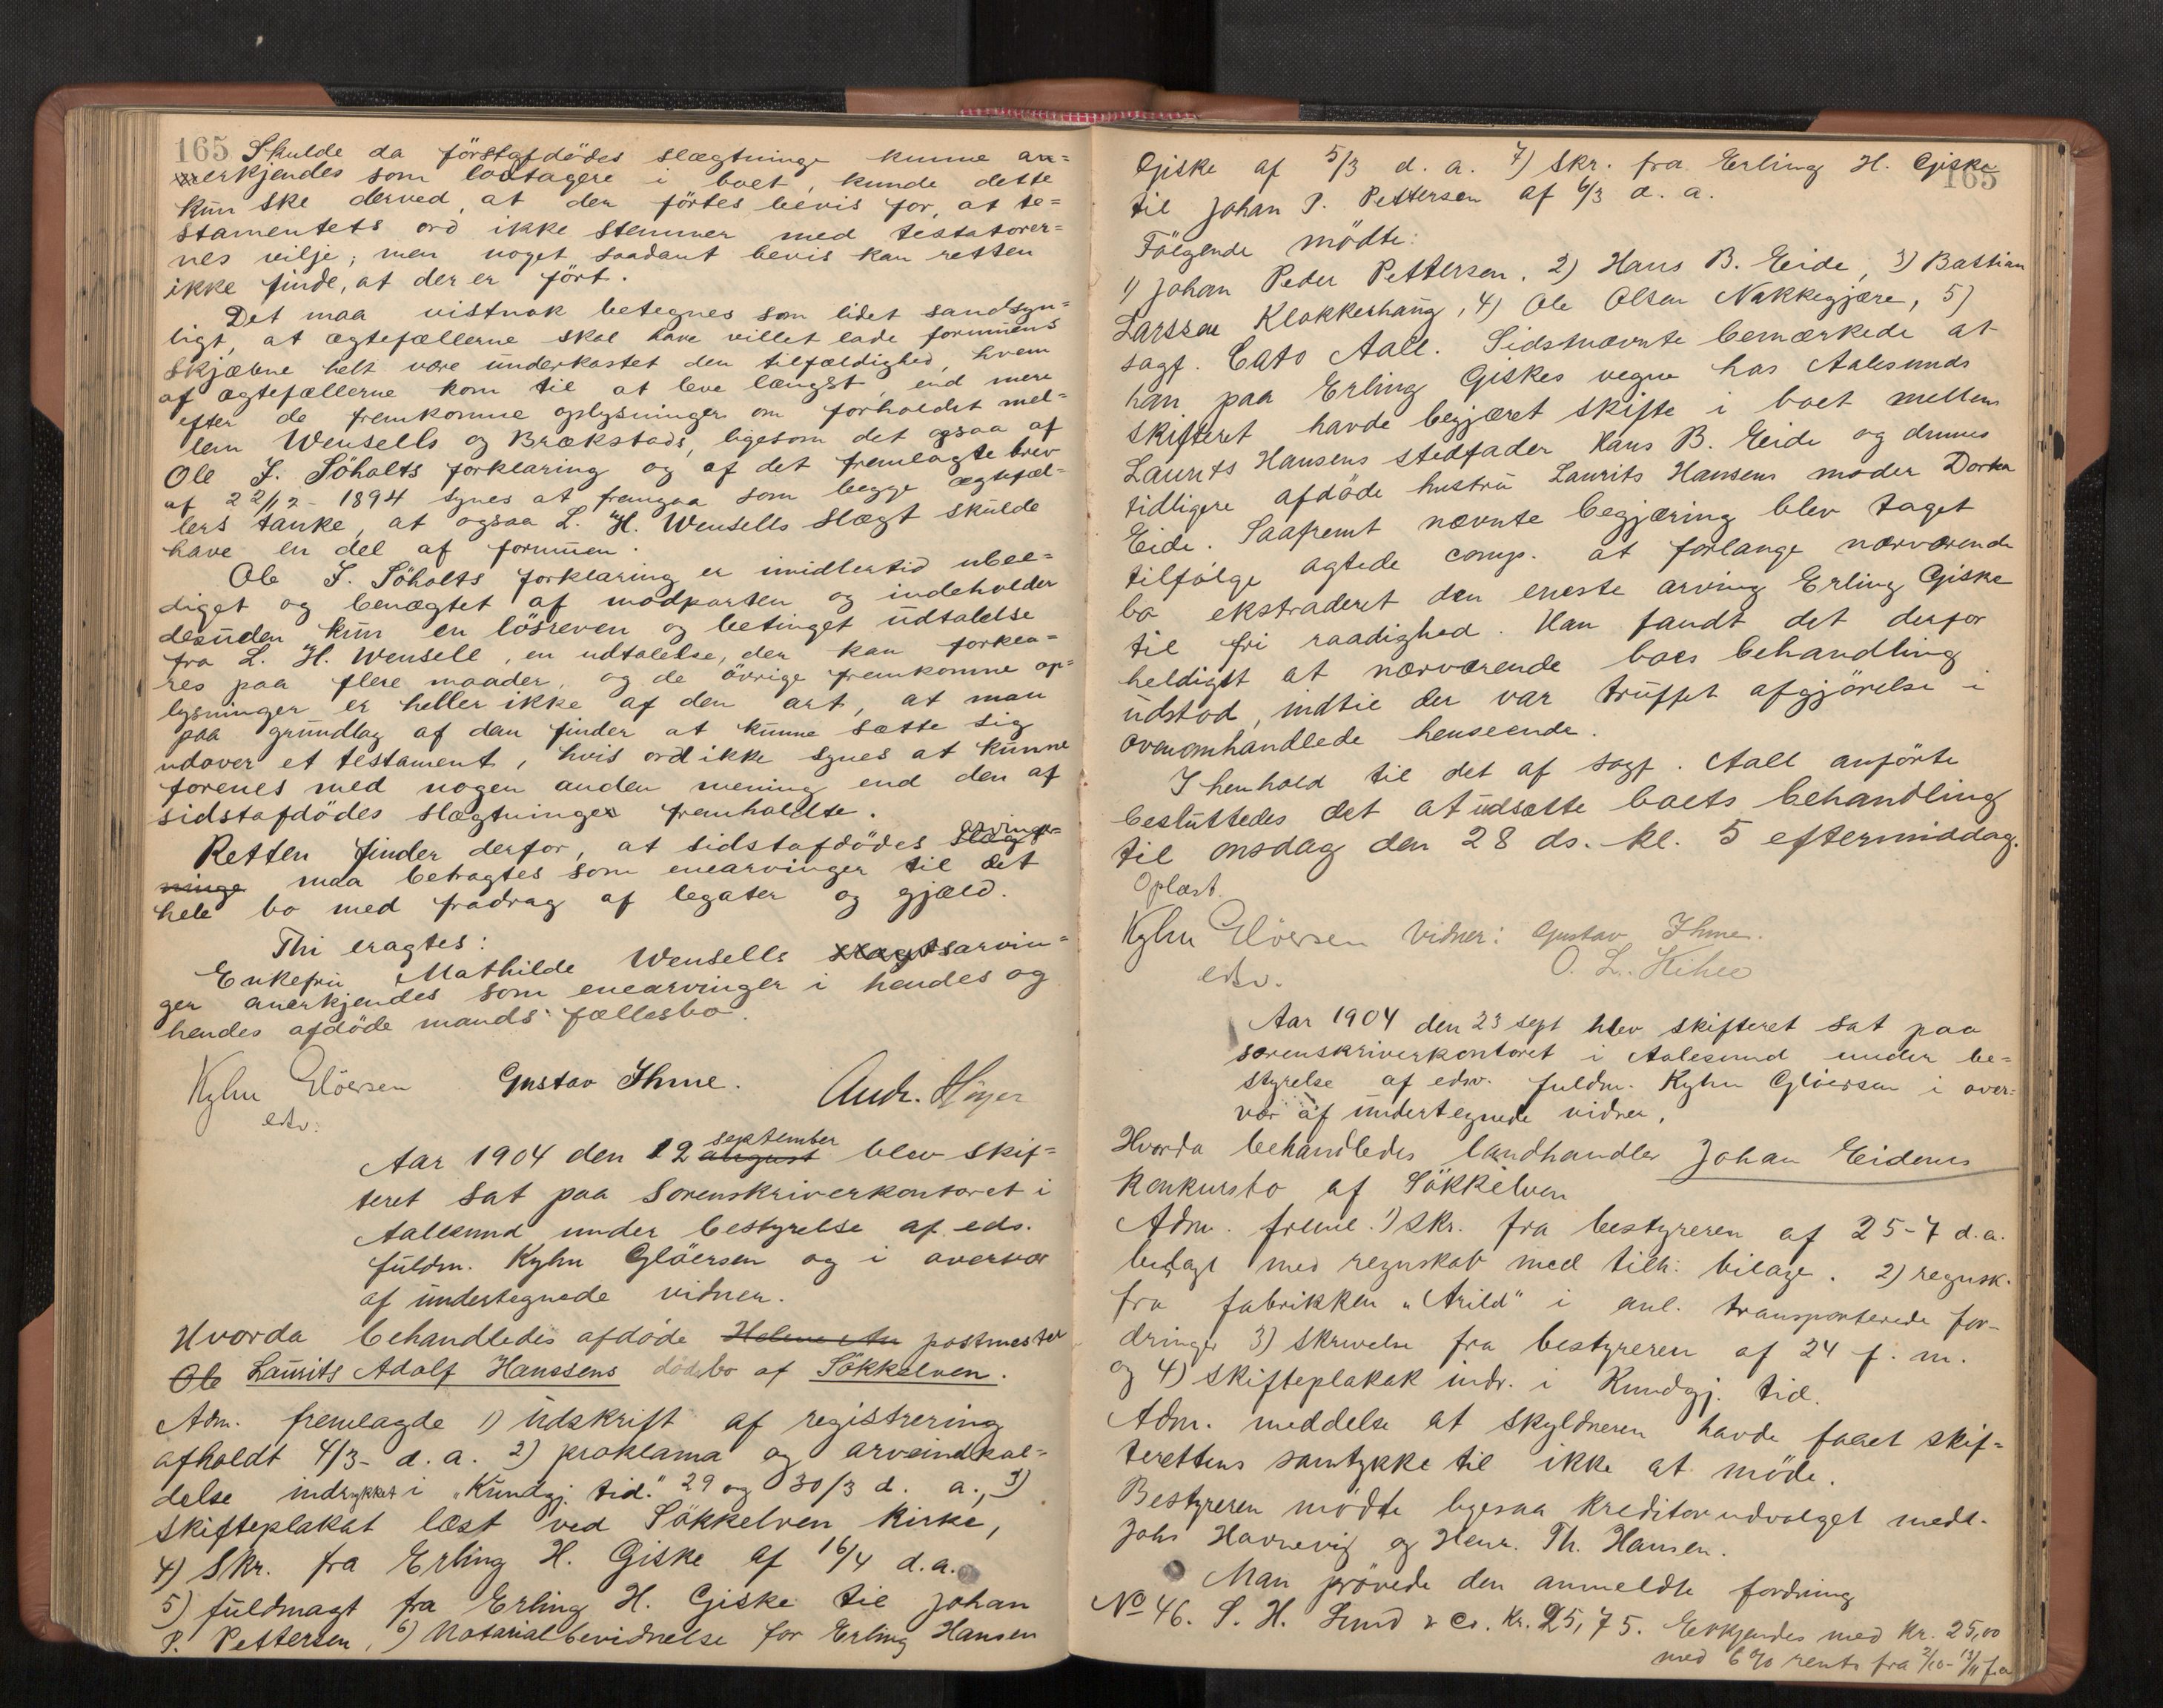 165 Skulde da förstafdödes slægtninge kunne an=
erkjendes som lodtagere i boet, kunde dette
kun ske derved, at der förtes bevis for, at te=
stamentets ord ikke stemmer med testatorer=
nes vilje; men noget saadant bevis kan retten
ikke finde, at der er fört.
Det maa vistnok betegnes som lidet sandsyn=
ligt, at ægtefællerne skal have villet lade formuens
skjæbne helt være underkastet den tilfældighed, hvem
af ægtefællerne kom til at leve længst, end mere
efter de fremkomne oplysninger om forholdet mel=
lem Wensells og Brækstads, ligesom det ogsaa af
Ole J. Söholts forklaring og af det fremlagte brev
af 22/12- 1894 synes at fremgaa som begge ægtefæl=
lers tanke, at ogsaa L. H. Wensells slægt skulde
have en del af formuen.
Ole J. Söholts forklaring er imidlertid ubee=
diget og benægtet af modparten og indeholder
desuden kun en lösreven og betinget udtalelse
fra L. H. Wensell, en udtalelse, der kan forkla=
res paa flere maader, og de övrige fremkomne op=
lysninger er heller ikke af den art, at man
paa grundlag af dem finder at kunne sætte sig
udover et testament, hvis ord ikke synes at kunne
forenes med nogen anden mening end den af
sidstafdödes slægtninger fremholdte.
Retten finder derfor, at sidstafdödes slægt= arvinger
ninge maa betragtes som enearvinger til det
hele bo med fradrag af legater og gjæld.
Thi eragtes:
Enkefru Mathilde Wensells slægtsarvin=
ger anerkjendes som enearvinger i hendes og
hendes afdöde mands fællesbo.
Kyhn Glöersen Gustav Ihme. Andr. Höyer
edsv.
Aar 1904 den 12 august september blev skif=
teret sat paa Sorenskriverkontoret i
Aalesund under bestyrelse af eds.
fuldm. Kyhn Glöersen og i overvær
af undertegnede vidner.
Hvorda behandledes afdöde postmester
Ole Laurits Adolf Hanssens dödsbo af Sökkelven.
Adm. fremlagde 1) udskrift af registrering
afholdt 4/3- d. a. 2) proklama og arveindkal=
delse indrykket i "Kundgj. tid." 29 og 30/3 d. a., 3)
skifteplakat læst ved Sökkelven kirke,
4) Skr. fra Erling H. Giske af 16/4 d.a.
5) fuldmagt fra Erling H. Giske til Johan
P. Pettersen, 6) Notarialbevidnelse for Erling Hansen
165
Giske af 5/3 d. a. 7) Skr. fra Erling H. Giske
til Johan P. Pettersen af 6/3 d. a.
Fölgende mödte:
1) Johan Peder Pettersen, 2) Hans B. Eide, 3) Bastian
Larssen Klokkerhaug, 4) Ole Olsen Nakkegjære, 5)
sagf. Cato Aall. Sidstnævnte bemærkede at
han paa Erling Giskes vegne hos Aalesunds
skifteret havde begjæret skifte i boet mellem
Laurits Hansens stedfader Hans B. Eide og dennes
tidligere afdöde hustru Laurits Hansens moder Dorthea
Eide. Saafremt nævnte begjæring blev taget
tilfölge agtede comp. at forlange nærværende
bo ekstraderet den eneste arving Erling Giske
til fri raadighed. Han fandt det derfor
heldigst at nærværende boes behandling
udstod, indtil der var truffet afgjörelse i
ovenomhandlede henseende.
I henhold til det af sagf. Aall anförte
besluttedes det at udsætte boets behandling
til onsdag den 28 ds. kl. 5 eftermiddag.
Oplæst.
Kyhn Glöersen Vidner: Gustav Ihme.
edsv. O. L.
Aar 1904 den 23 sept blev skifteret sat paa
sorenskriverkontoret i Aalesund under be=
styrelse af edsv. fuldm. Kyhn Glöersen i over=
vær af undertegnede vidner.
Hvorda behandledes landhandler Johan Eidems
Konkursbo af Sökkelven
Adm. freml. 1) Skr. fra bestyreren af 25-7 d.a.
bilagt med regnskab med tilh. bilage. 2) regnsk.
fra fabrikken "Arild" i anl. transporterede for-
dringer 3) skrivelse fra bestyreren af 24 f. m.
og 4) skifteplakat indr. i Kundgj. tid.
Adm. meddelte at skyldneren havde faaet skif=
terettens samtykke til ikke at möde.
Bestyreren mödte ligesaa kreditorudvalget medl.
Johs Havnevig og Henr. Th. Hansen.
Man prövede den anmeldte fordring
No 46. S. H. Lund & Co. Kr. 25,75. Erkjendes med Kr. 25,00
med 6% rente fra 2/10 - 13/11 f.a